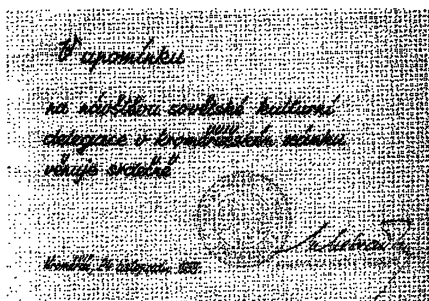 V upomínku
na návštěvu sovětské kulturní
delegace v kroměřížském zámku
věnuje srdečně
Kroměříž, 24 listopadu